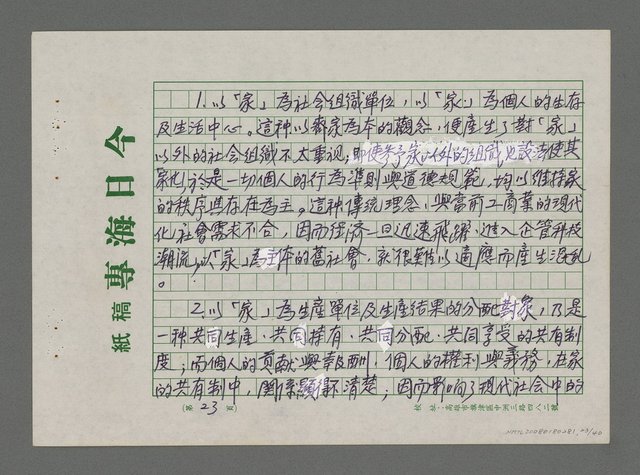 今日海專
稿紙
1. 以「家」為社會組織單位，以「家」為個人的生存
及生活中心。這种以齊家為本的觀念，便產生了對「家」
以外的社會組織不太重視；即使參予家以外的組織也設法使其
家化，於是一切個人的行為準則與道德規範，均以維持家
的秩序與存在為主。這种傳統理念，與當前工商業的現代
化社會需求不合，因而經濟一旦迅速飛躍，進入企管科技
潮流，以「家」為主体的舊社會，就很難以適應而產生混亂
。
2. 以「家」為生產單位及生產結果的分配對象，乃是
一种共同生產、共同持有、共同分配、共同享受的共有制
度；而個人的貢献與報酬，個人的權利與義務，在家
的共有制中，關係顯得不清楚，因而影响了現代社會中的
（第23頁）
校址：高雄市旗津區中洲三路四八二號